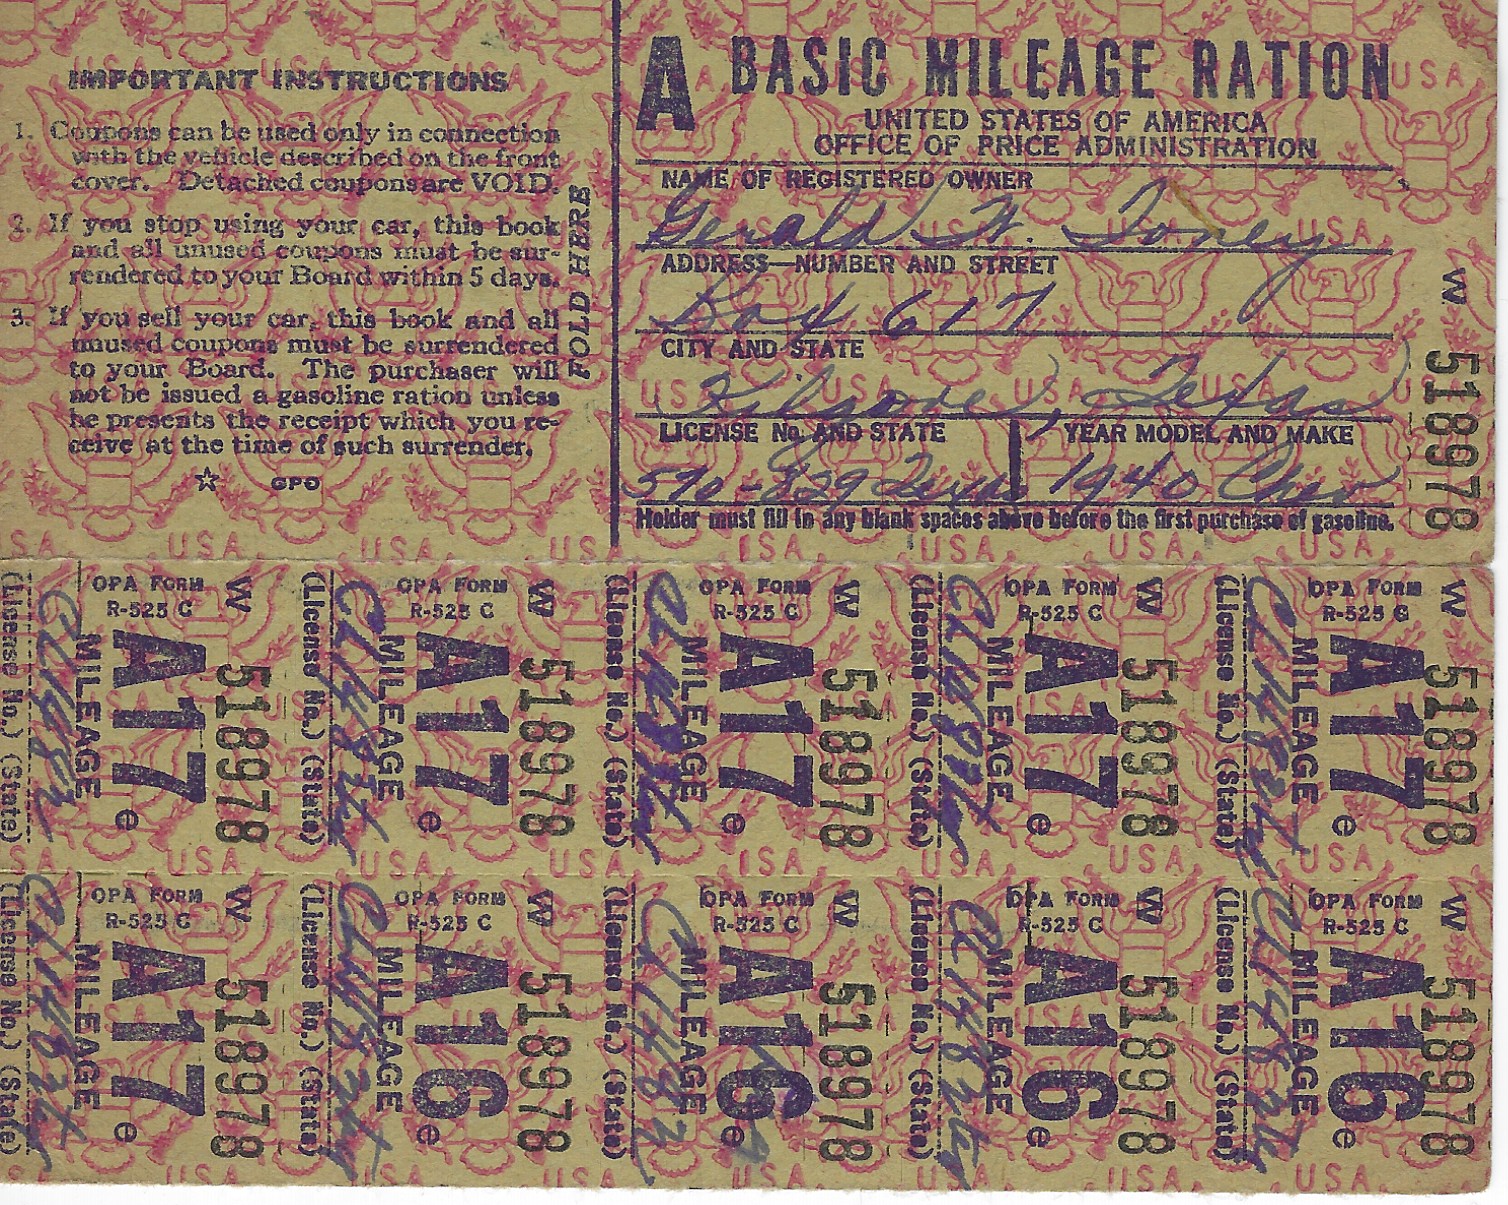 IMPORTANT INSTRUCTIONS
1. Coupons can be used only in connection
with the vehicle described on the front
cover. Detached coupons are VOID.
2. If you stop using your car, this book
and all unused coupons must be sur-
rendered to your Board within 5 days.
3. If you sell your car, this book and all
unused coupons must be surrendered
to your Board. The purchaser will
not be issued a gasoline ration unless
he presents the receipt which you re-
ceive at the time of such surrender.
☆ GPO
FOLD HERE
A BASIC MILEAGE RATION
UNITED STATES OF AMERICA
OFFICE OF PRICE ADMINISTRATION
NAME OF REGISTERED OWNER
Gerald W. Toney
ADDRESS—NUMBER AND STREET
Box 617
CITY AND STATE
Kilgore, Texas
LICENSE No. AND STATE YEAR MODEL AND MAKE
570-829 Texas 1940 Chev
Holder must fill in any blank spaces above before the first purchase of gasoline.
W 518978
OPA FORM
R-525 C
MILEAGE
A17
e
W 518978
(License No.) (State)
OPA FORM
R-525 C
MILEAGE
A17
e
W 518978
(License No.) (State)
OPA FORM
R-525 C
MILEAGE
A17
e
W 518978
(License No.) (State)
OPA FORM
R-525 C
MILEAGE
A17
e
W 518978
(License No.) (State)
OPA FORM
R-525 C
MILEAGE
A17
e
W 518978
(License No.) (State)
OPA FORM
R-525 C
MILEAGE
A17
e
W 518978
(License No.) (State)
OPA FORM
R-525 C
MILEAGE
A16
e
W 518978
(License No.) (State)
OPA FORM
R-525 C
MILEAGE
A16
e
W 518978
(License No.) (State)
OPA FORM
R-525 C
MILEAGE
A16
e
W 518978
(License No.) (State)
OPA FORM
R-525 C
MILEAGE
A16
e
W 518978
(License No.) (State)